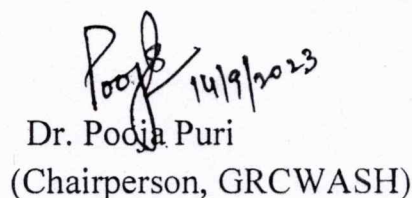 Pooja 14/9/2023
Dr. Pooja Puri
(Chairperson, GRCWASH)